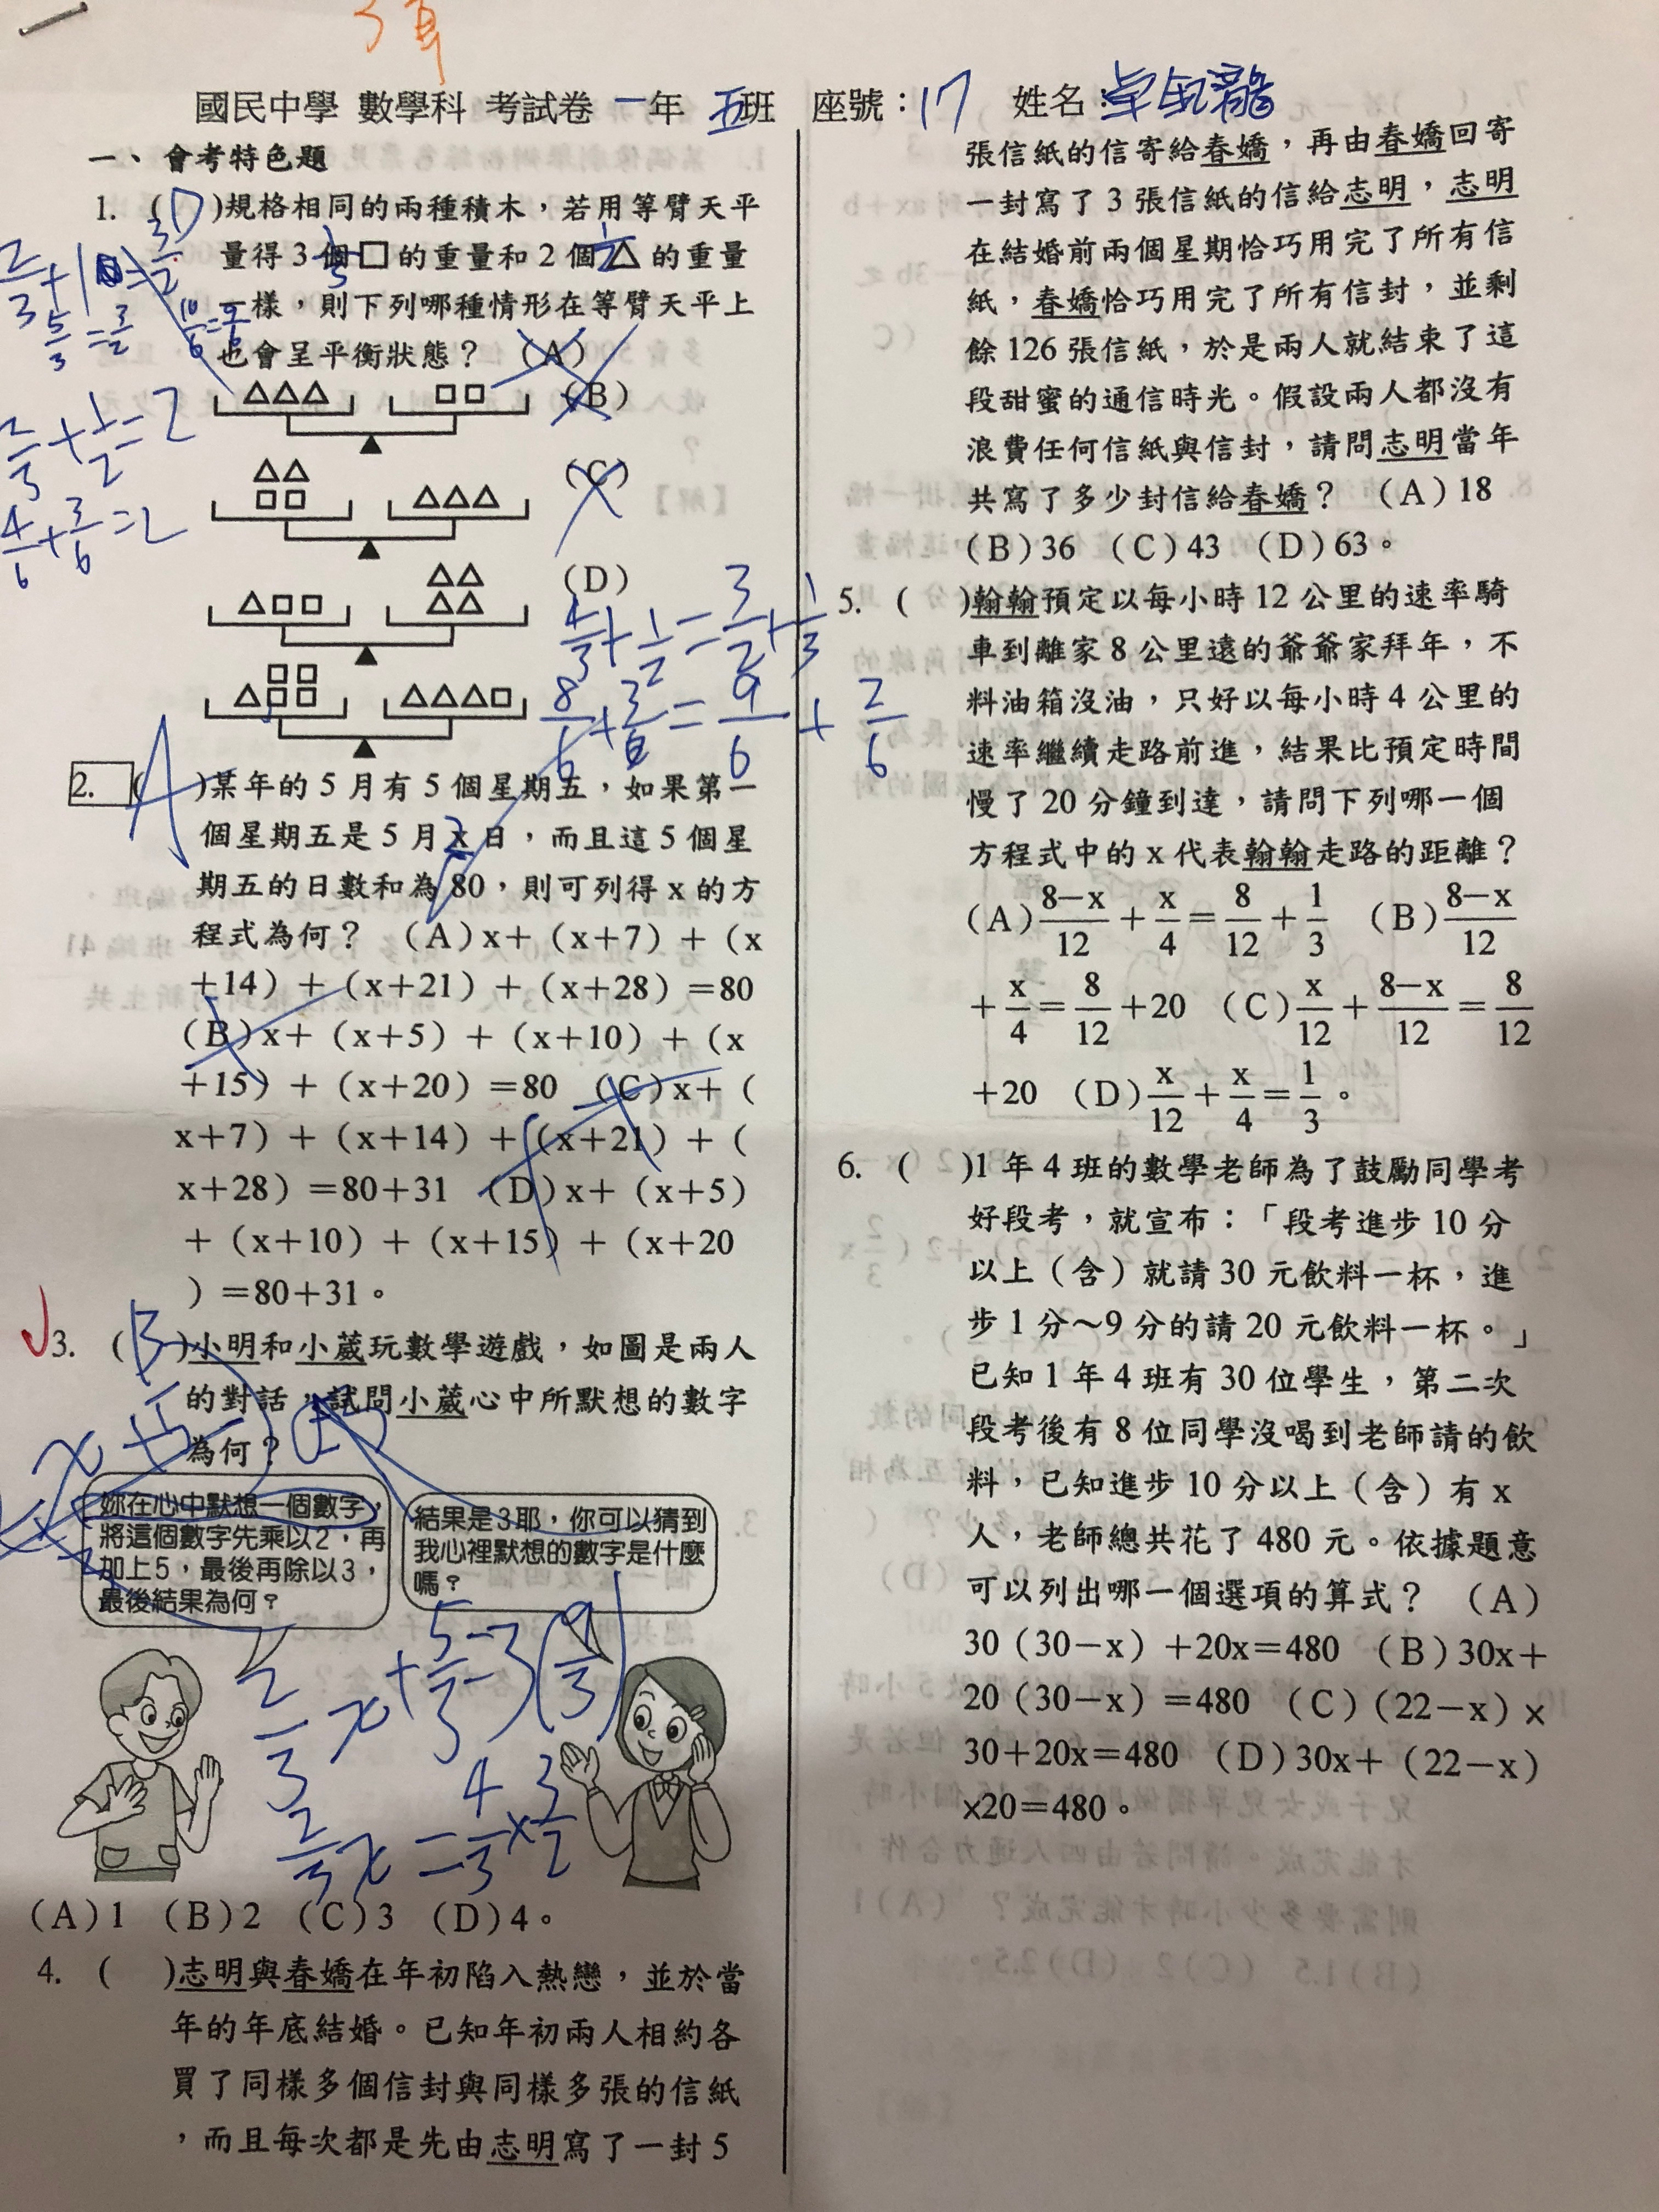 3頁
國民中學 數學科 考試卷 一年 五班 座號：17 姓名：
一、會考特色題
1. (D)規格相同的兩種積木，若用等臂天平
量得3個□的重量和2個△的重量
一樣，則下列哪種情形在等臂天平上
也會呈平衡狀態？ (A)
△△△ □□
(B)
△△
□□ △△△
(C)
△□□ △△
△△
(D)
□□
△□□ △△△□
4/3+1/2=3/2+1/3
8/6+3/6=9/6+2/6
2/3+1/2=2
4/6+3/6=2
2. (A)某年的5月有5個星期五，如果第一
個星期五是5月x日，而且這5個星
期五的日數和為80，則可列得x的方
程式為何？ (A)x＋(x＋7)＋(x
＋14)＋(x＋21)＋(x＋28)＝80
(B)x＋(x＋5)＋(x＋10)＋(x
＋15)＋(x＋20)＝80 (C)x＋(
x＋7)＋(x＋14)＋(x＋21)＋(
x＋28)＝80＋31 (D)x＋(x＋5)
＋(x＋10)＋(x＋15)＋(x＋20
)＝80＋31。
3. (B)小明和小葳玩數學遊戲，如圖是兩人
的對話，試問小葳心中所默想的數字
為何？
妳在心中默想一個數字，
將這個數字先乘以2，再
加上5，最後再除以3，
最後結果為何？
結果是3耶，你可以猜到
我心裡默想的數字是什麼
嗎？
2/3x+5/3=3(9/3)
2/3x=4/3×3/2
(A)1 (B)2 (C)3 (D)4。
4. ( )志明與春嬌在年初陷入熱戀，並於當
年的年底結婚。已知年初兩人相約各
買了同樣多個信封與同樣多張的信紙
，而且每次都是先由志明寫了一封5
張信紙的信寄給春嬌，再由春嬌回寄
一封寫了3張信紙的信給志明，志明
在結婚前兩個星期恰巧用完了所有信
紙，春嬌恰巧用完了所有信封，並剩
餘126張信紙，於是兩人就結束了這
段甜蜜的通信時光。假設兩人都沒有
浪費任何信紙與信封，請問志明當年
共寫了多少封信給春嬌？ (A)18
(B)36 (C)43 (D)63。
5. ( )翰翰預定以每小時12公里的速率騎
車到離家8公里遠的爺爺家拜年，不
料油箱沒油，只好以每小時4公里的
速率繼續走路前進，結果比預定時間
慢了20分鐘到達，請問下列哪一個
方程式中的x代表翰翰走路的距離？
(A)8－x/12＋x/4＝8/12＋1/3 (B)8－x/12
＋x/4＝8/12＋20 (C)x/12＋8－x/12＝8/12
＋20 (D)x/12＋x/4＝1/3。
6. ( )1年4班的數學老師為了鼓勵同學考
好段考，就宣布：「段考進步10分
以上(含)就請30元飲料一杯，進
步1分～9分的請20元飲料一杯。」
已知1年4班有30位學生，第二次
段考後有8位同學沒喝到老師請的飲
料，已知進步10分以上(含)有x
人，老師總共花了480元。依據題意
可以列出哪一個選項的算式？ (A)
30(30－x)＋20x＝480 (B)30x＋
20(30－x)＝480 (C)(22－x)×
30＋20x＝480 (D)30x＋(22－x)
×20＝480。